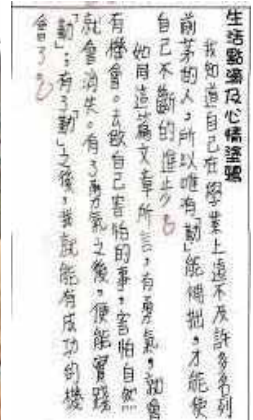 生活點滴及心情塗鴉
我知道自己在學業上遠不及許多名列
前茅的人,所以唯有「勤」能補拙,才能使
自己不斷的進步。
如同這篇文章所言,有勇氣,就會
有機會。去做自己害怕的事,害怕自然
就會消失。有了勇氣之後,便能實踐
「動」;有了「動」之後,我就能有成功的機
會了。